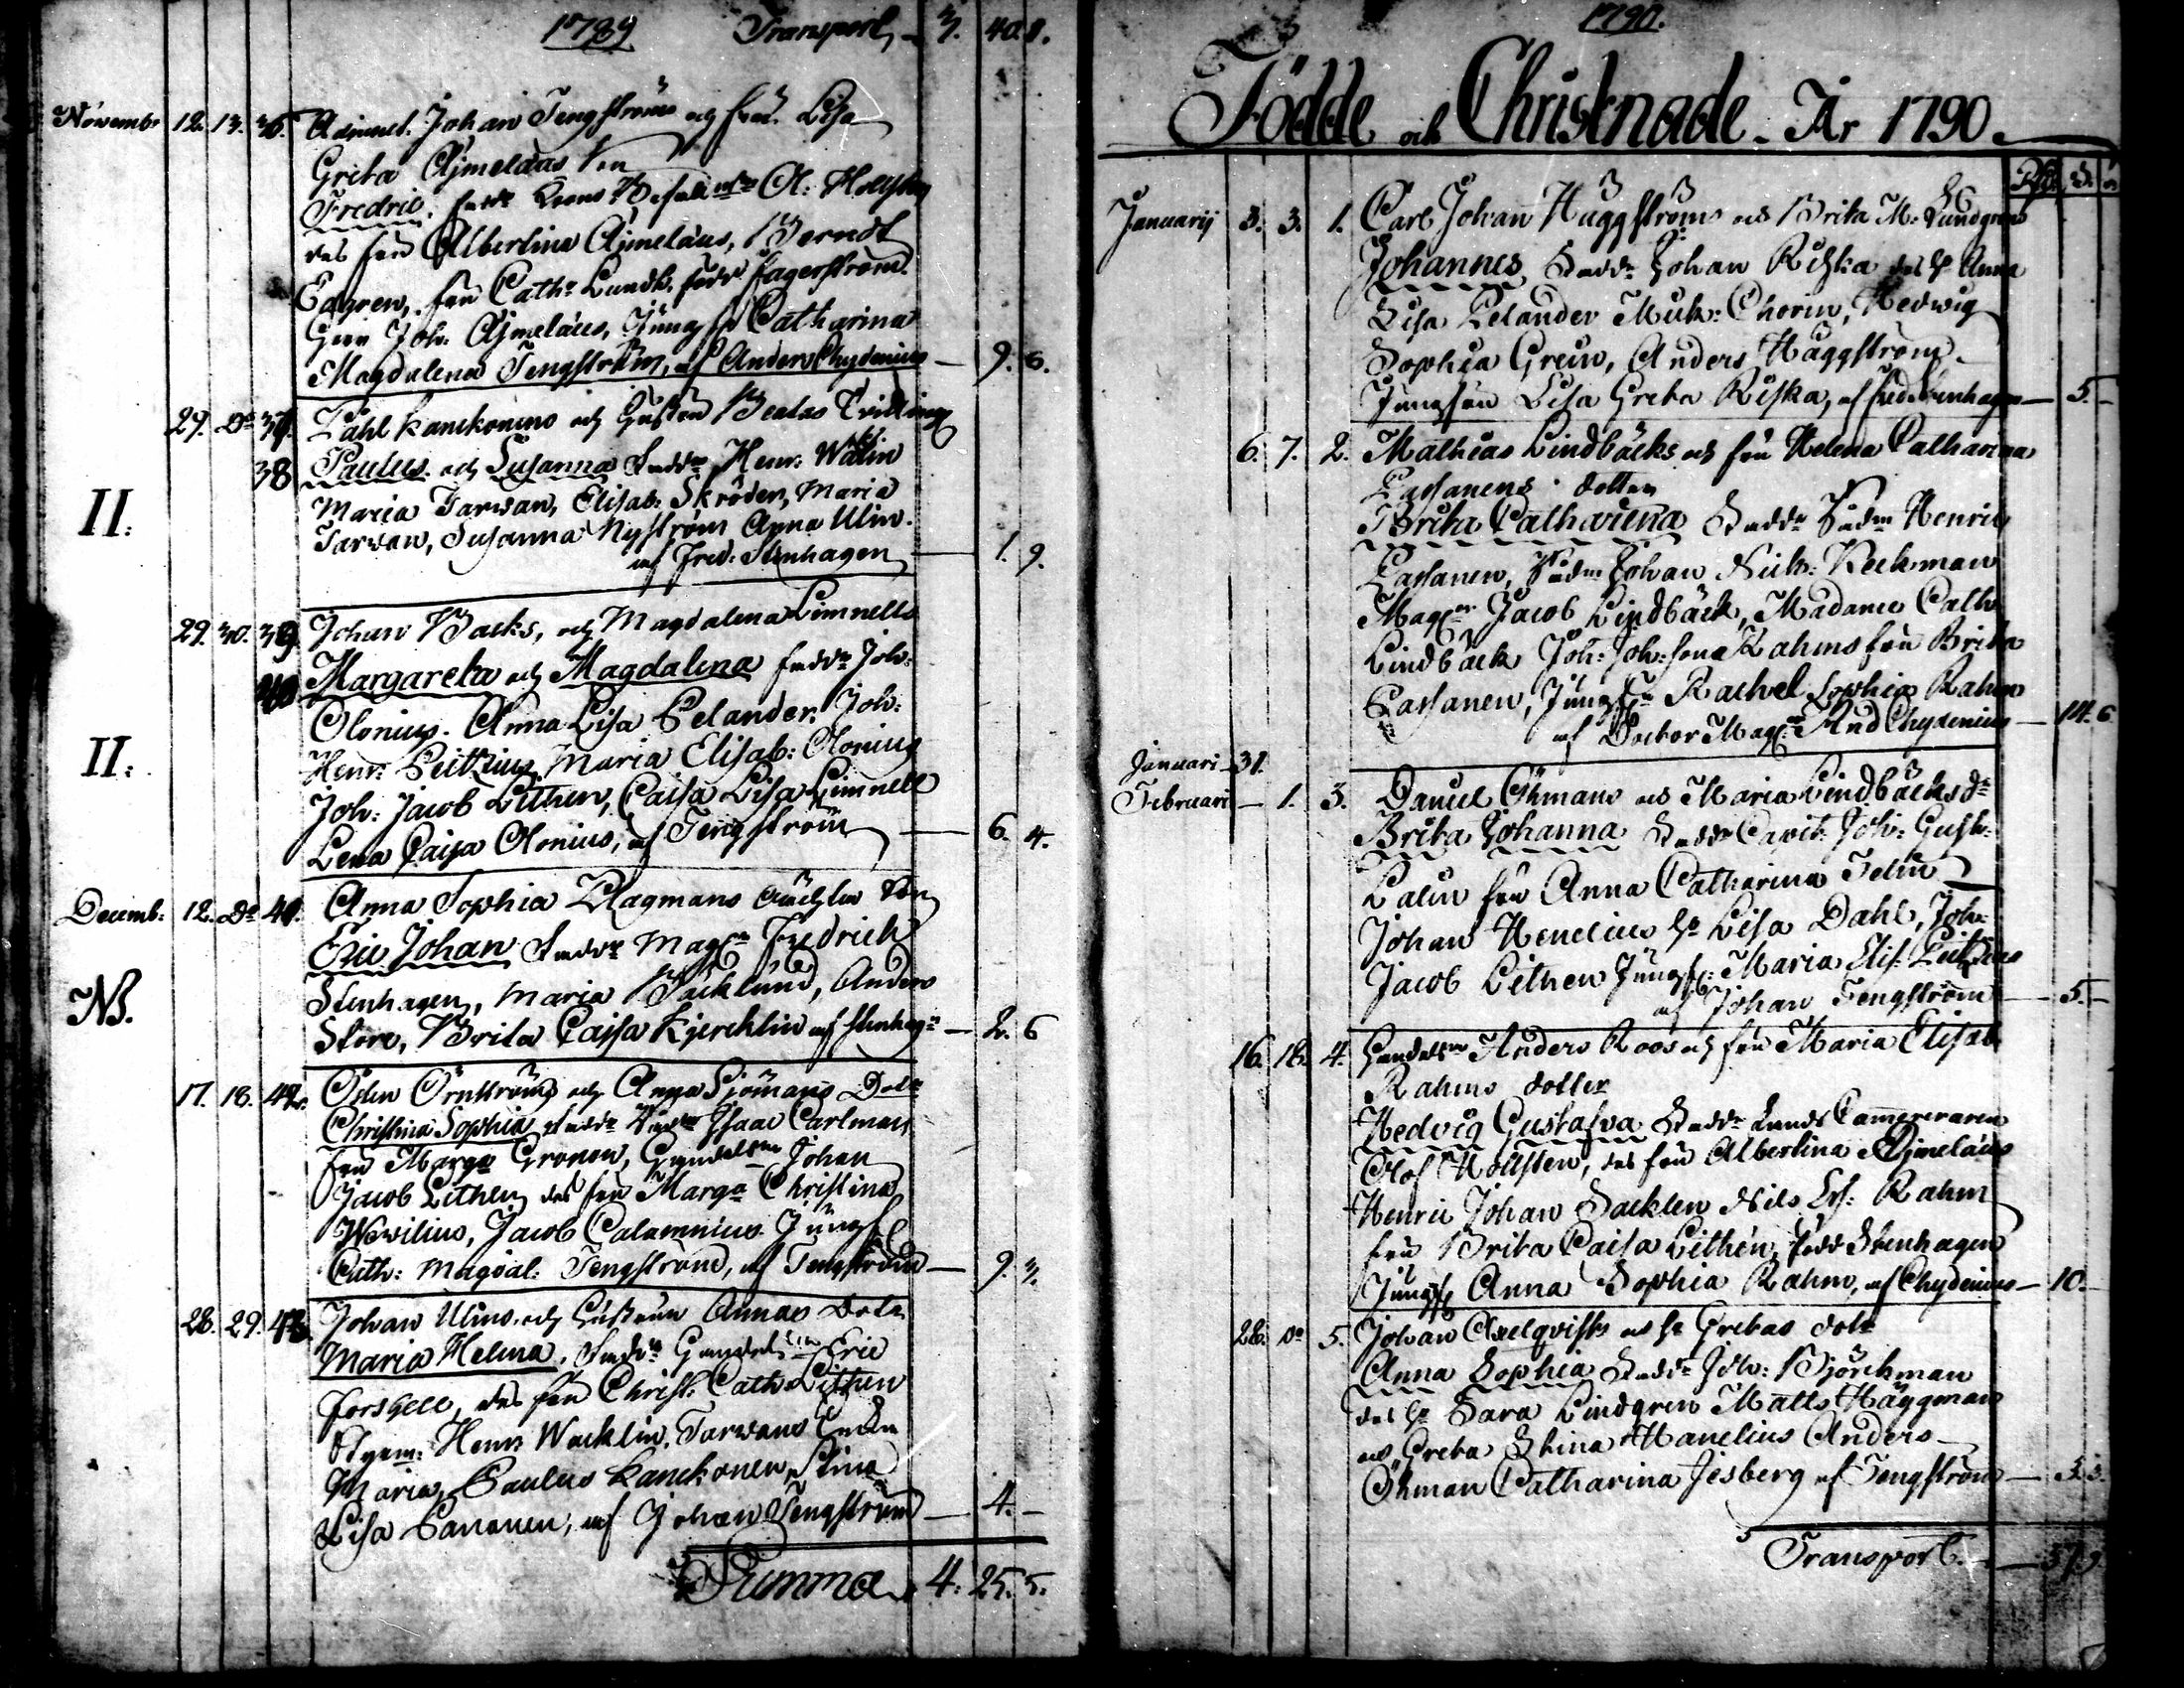 1789 Transport 3. 40. 8.
Novemb: 12. 13. 36. Adjunct. Johan Tengströms och fru Lisa
Greta Ajmelaus Son
Fredric. Johan
des fru Albertina Ajmelaus, Berndt
fru Cath: Lundb. född Fagerström.
Joh: Ajmelaus, Jungfr Catharina
Magdalena Tengström, af Anders Chydenius — 9. 6.
29. Do 37. Påhl Kanckonens och Hustru Beatas Tvillingar
38 Paulus och Susanna Faddr Henr: Walin
Maria Tarwan, Elisab: Skröder, Maria
II: Tarwan, Susanna Nyström Anna Ulin.
af Fred: Stenhagen — 1. 9.
29. 30. 39. Johan Backs, och Magdalena Limnells
40 Margareta och Magdalena Faddr Joh:
Olonius. Anna Lisa Pelander. Joh:
II: Henr: Peitzius, Maria Elisab: Olonius
Joh: Jacob Lithen, Caisa Lisa Limnell
Lena Caisa Olonius, af Tengström — 6. 4.
Decemb: 12. Do 41. Anna Sophia Plagmans oächta Son
Eric Johan Faddr Magr Fredrich
NB. Stenhagen, Maria Backlund, Anders
Store, Brita Cajsa Kjercklin af Stenhagn — 2. 6
17. 18. 42. Östen Örnströms och Anna Sjömans Dotr
Christina Sophia Faddr Isaac Carlman
fru Marga Gronow, Handelsm Johan
Jacob Lithen des fru Marga Christina
Wewilius, Jacob Calamnius Jungf
Cath: Magdal: Tengström, af Tengström — 9. 3.
28. 29. 43. Johan Ulins och Hustrun Annas Dotr
Maria Helena. Faddr Handelsm Eric
Forssell, des fru Christ: Cath: Lithen
Henr Wacklin, Tarwans Enka
Maria, Paulus Kanckonen, Stina
Lisa Pananen, af Johan Tengström — 4. –
Summa 4. 25. 5.
1790.
Födde och Christnade År 1790.
Januarij 3. 3. 1. Carl Johan Häggströms och Brita M: Lundgrens
Johannes Faddr Johan Riska des h: Anna
Lisa Pelander Mich: Chorin, Hedwig
Sophia Grein, Anders Häggström
Jungfru Lisa Greta Riska, af Fred Stenhagen — 5. –
6. 7. 2. Mathias Lindbäcks och fru Helena Catharina
Passanens dotter
Brita Catharina Faddr Henric
Passanen, Johan Nich: Keckman
Magr Jacob Lindbäck, Madame Cath:
Lindbäck Joh: Joh:sons Rahms fru Brita
Passanen, Jungfr Rachel Sophia Rahm
af Doctor Magr And Chydenius — 14. 6
Januari 31.
Februari — 1. 3. Daniel Öhmans och Maria Lindbäcks dr
Brita Johanna Faddr Joh: Gust:
Calin fru Anna Catharina Felin
Johan Henelius h: Lisa Dahl, Joh:
Jacob Lithen Jungf: Maria Elis: Peitzius
af Johan Tengström — 5. –
16. 18. 4. Handelsm Anders Roos och fru Maria Elisab
Rahms dotter
Hedvig Gustafva Faddr Lands Camereraren
Olof Holsten, des fru Albertina Ajmelaus
Henric Johan Backlen Nils Er: Rahm
fru Brita Caisa Lithén, född Stenhagen
Jungf Anna Sophia Rahm, af Chydenius — 10. –
28. Do 5. Johan Axelqvists och h: Gretas dotr
Anna Sophia Faddr Joh: Björckman
des h: Sara Lindgren Matts Häggman
och Greta Stina Hanelius Anders
Öhman Catharina Jesberg af Tengström — 3. 3.
Transport. — 37. 9